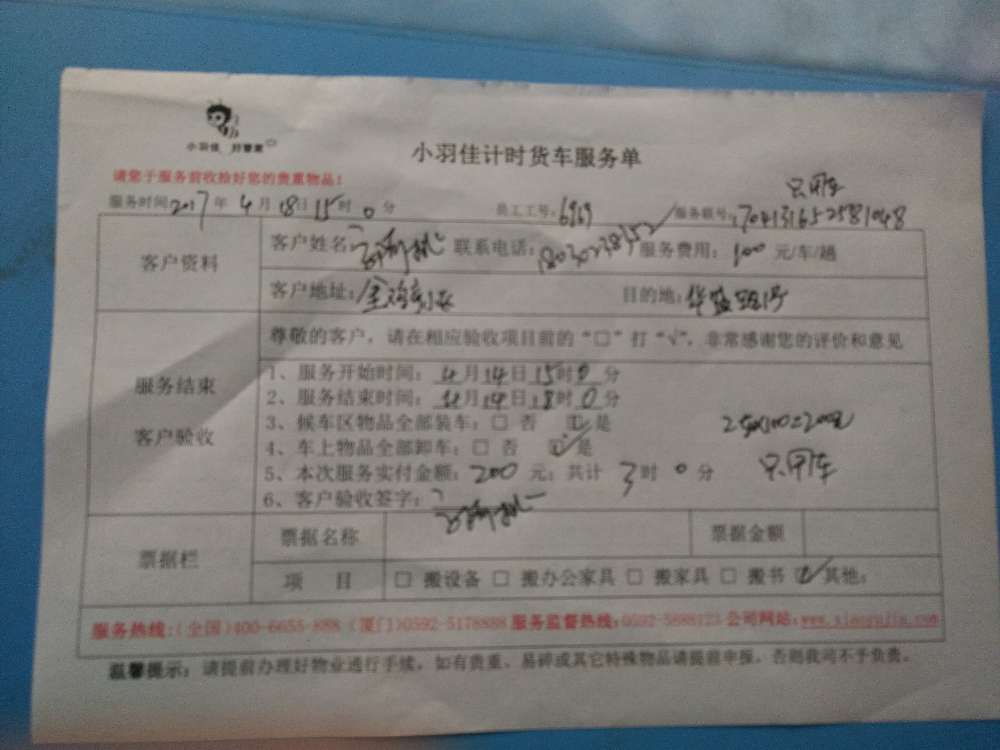 小羽佳 好管家
小羽佳计时货车服务单
请您于服务前收拾好您的贵重物品!
只用车
服务时间2017年4月18日15时0分 员工工号:6969 服务联号:
客户资料
客户姓名: 联系电话: 服务费用:100元/车/趟
客户地址: 目的地:
尊敬的客户,请在相应验收项目前的“□”打“√”,非常感谢您的评价和意见
服务结束
客户验收
1、服务开始时间:4月14日15时0分
2、服务结束时间:4月14日18时0分
3、候车区物品全部装车:□ 否 ☑是
4、车上物品全部卸车:□ 否 ☑是
5、本次服务实付金额:200元;共计3时0分 只用车
6、客户验收签字:
票据栏
票据名称 票据金额
项 目 □ 搬设备 □ 搬办公家具 □ 搬家具 □ 搬书 ☑其他:
服务热线:(全国)400-6655-888 (厦门)0592-5178888 服务监督热线:0592-5888123 公司网站:www.xiaoyujia.com
温馨提示:请提前办理好物业通行手续,如有贵重、易碎或其它特殊物品请提前申报,否则我司不予负责。